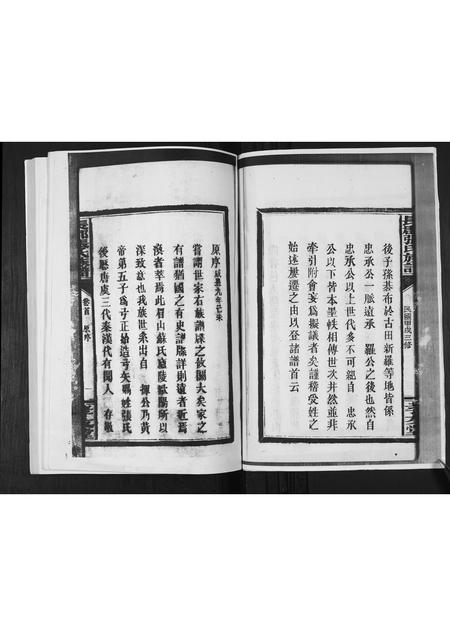 後子孫綦布於古田新羅等地皆係
忠承公一脈遠承　羅公之後也然自
忠承公以上世代多不可經自　忠承
公以下皆本墨帙相傳世次井然並非
牽引附會妄爲擬議者矣謹稽受姓之
始述遷之由以登諸譜首云
民國甲戌三修
原序咸豐九年己未
嘗謂世家右族譜牒之攸關大矣家之
有譜猶國之有史譜牒詳則遠者近焉
渙者萃焉此眉山蘇氏廬陵歐陽所以
深致意也我族世系出自　揮公乃黃
帝第五子爲弓正始造弓矢賜姓張氏
後歷唐虞三代秦漢代有聞人
卷首　原序